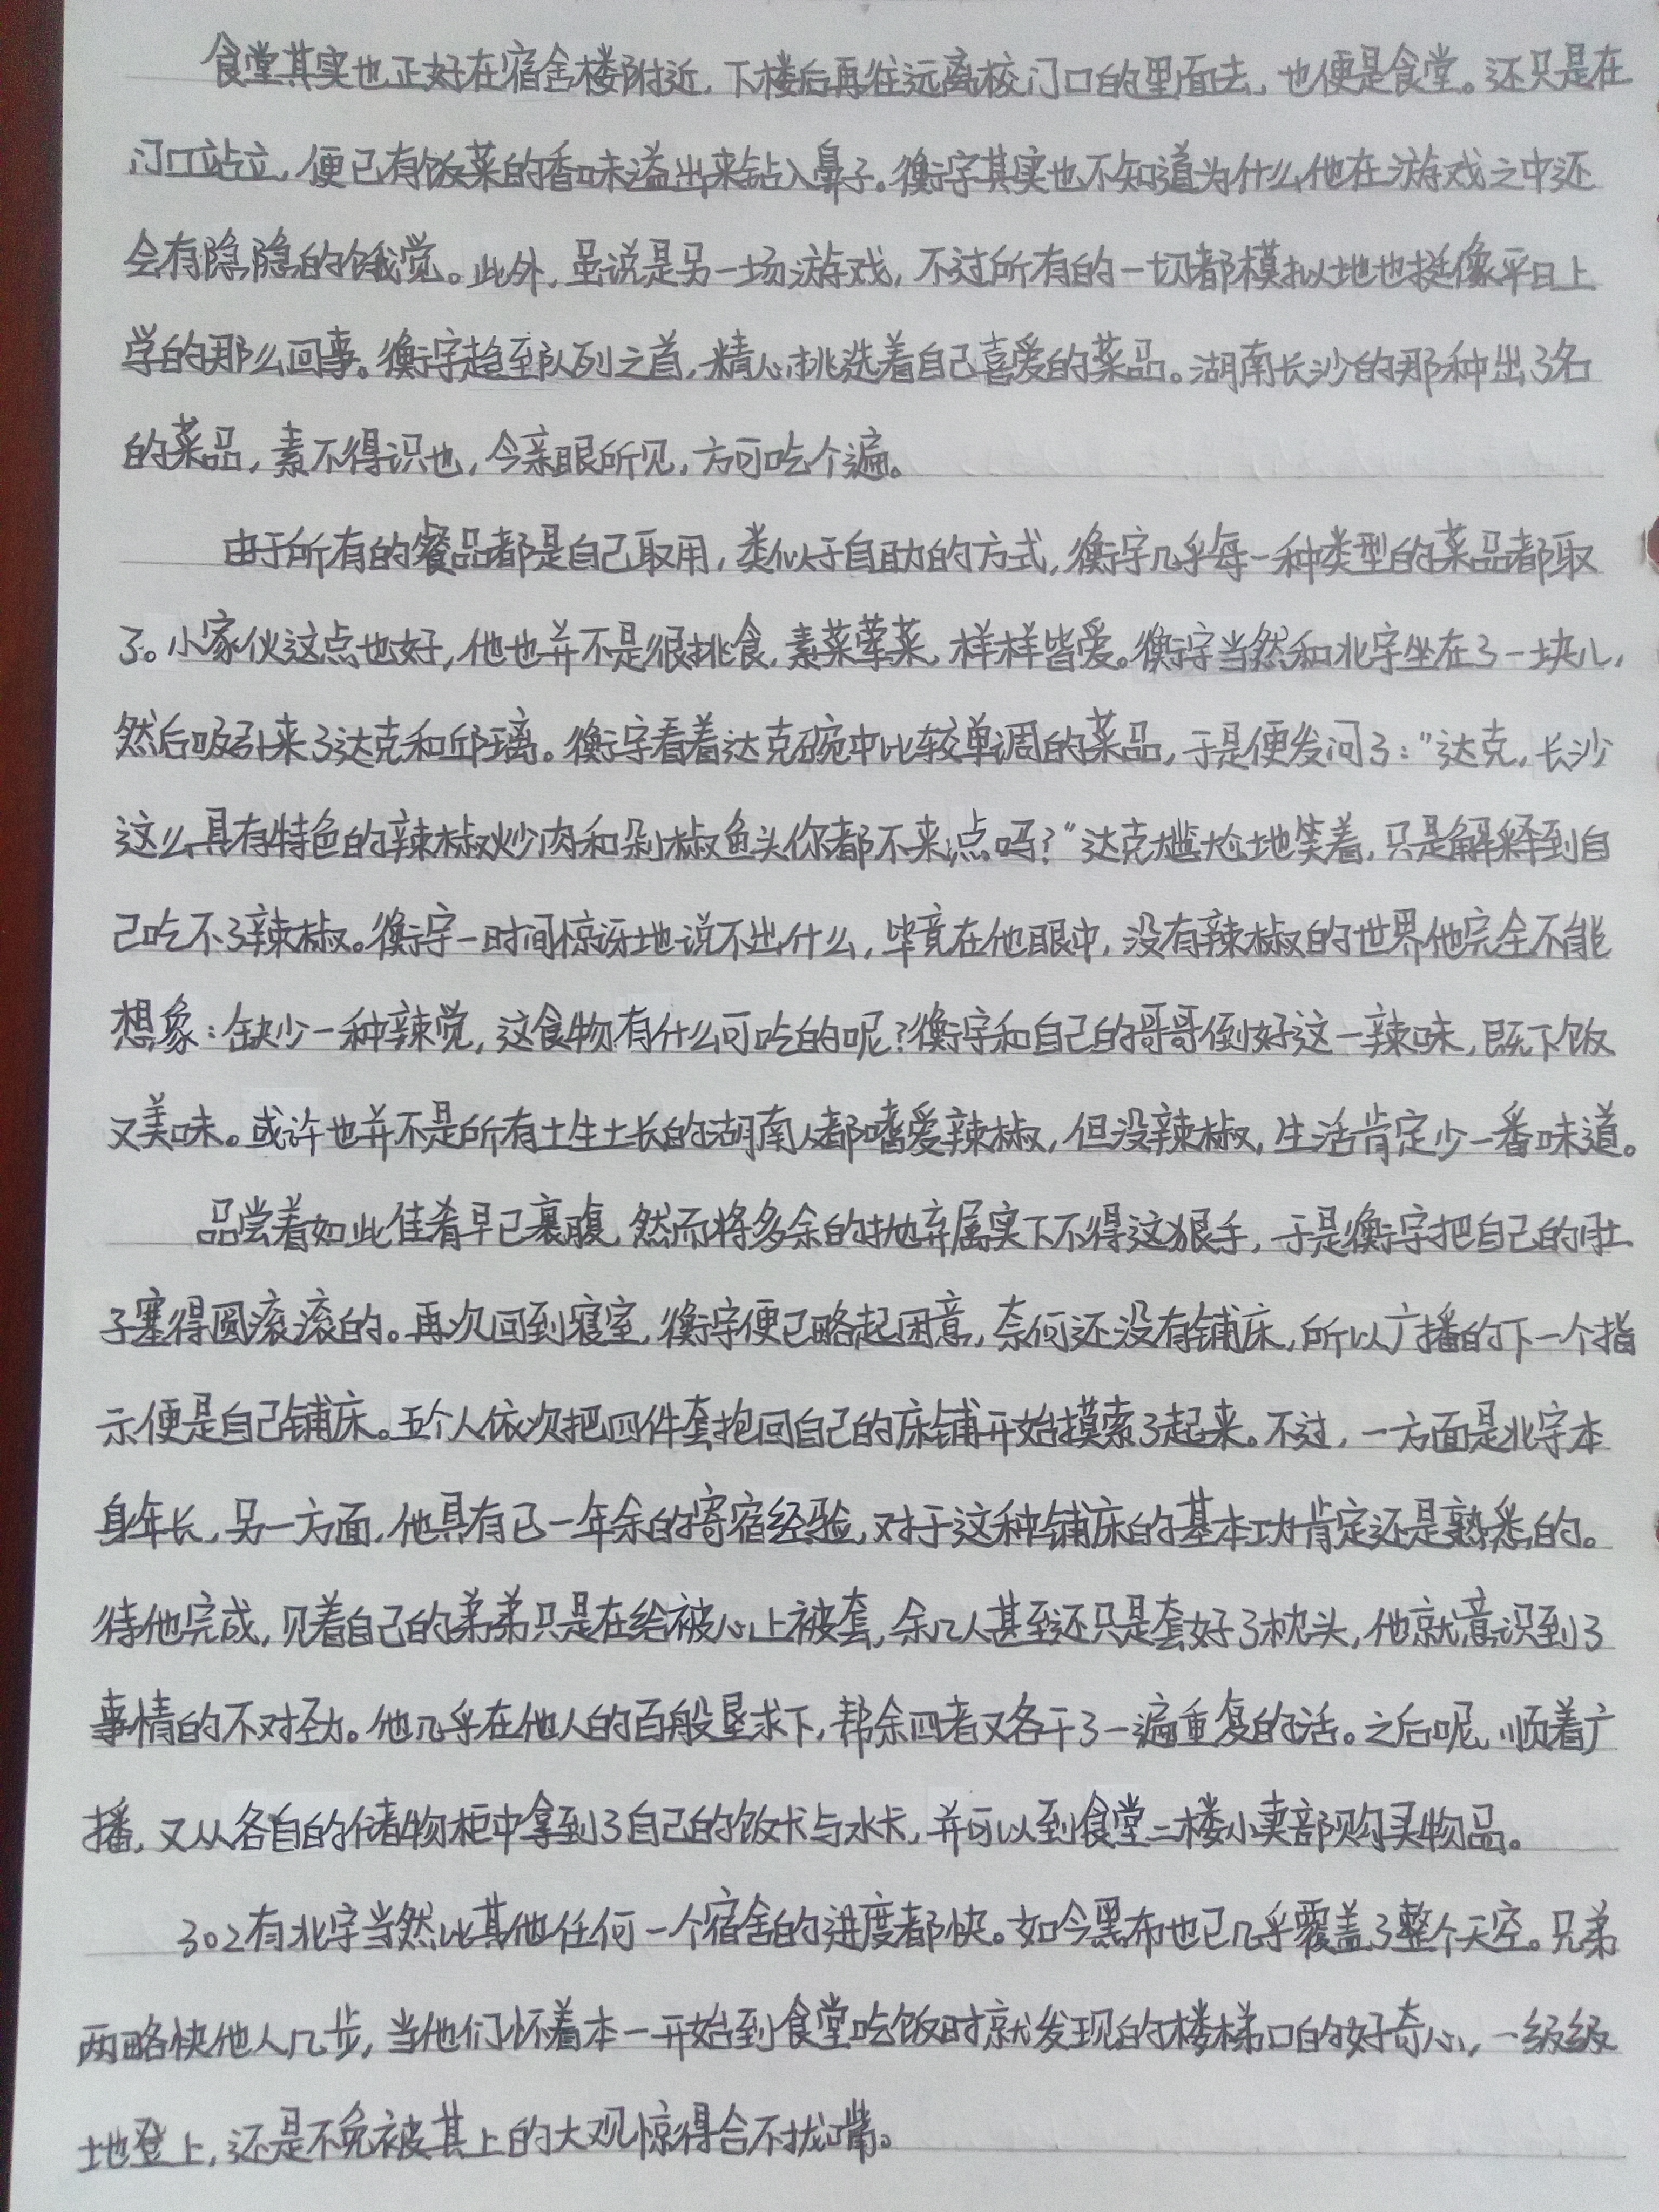 食堂其实也正好在宿舍楼附近，下楼后再往远离校门口的里面去，也便是食堂。还只是在
门口站立，便已有饭菜的香味溢出来钻入鼻子。衡宇其实也不知道为什么他在游戏之中还
会有隐隐的饿觉。此外，虽说是另一场游戏，不过所有的一切都模拟地也挺像平日上
学的那么回事。衡宇趋至队列之首，精心挑选着自己喜爱的菜品。湖南长沙的那种出了名
的菜品，素不得识也，今亲眼所见，方可吃个遍。
由于所有的餐品都是自己取用，类似于自助的方式，衡宇几乎每一种类型的菜品都取
了。小家伙这点也好，他也并不是很挑食，素菜荤菜，样样皆爱。衡宇当然和北宇坐在了一块儿，
然后吸引来了达克和邱璃。衡宇看着达克碗中比较单调的菜品，于是便发问了：“达克，长沙
这么具有特色的辣椒炒肉和剁椒鱼头你都不来点吗？”达克尴尬地笑着，只是解释到自
己吃不了辣椒。衡宇一时间惊讶地说不出什么，毕竟在他眼中，没有辣椒的世界他完全不能
想象：缺少一种辣觉，这食物有什么可吃的呢？衡宇和自己的哥哥倒好这一辣味，既下饭
又美味。或许也并不是所有土生土长的湖南人都嗜爱辣椒，但没辣椒，生活肯定少一番味道。
品尝着如此佳肴早已裹腹，然而将多余的抛弃属实下不得这狠手，于是衡宇把自己的肚
子塞得圆滚滚的。再次回到寝室，衡宇便已略起困意，奈何还没有铺床，所以广播的下一个指
示便是自己铺床。五个人依次把四件套抱回自己的床铺开始摸索了起来。不过，一方面是北宇本
身年长，另一方面，他具有已一年余的寄宿经验，对于这种铺床的基本功肯定还是熟悉的。
待他完成，见着自己的弟弟只是在给被心上被套，余几人甚至还只是套好了枕头，他就意识到了
事情的不对劲。他几乎在他人的百般恳求下，帮余四者又各干了一遍重复的活。之后呢，顺着广
播，又从各自的储物柜中拿到了自己的饭卡与水卡，并可以到食堂二楼小卖部购买物品。
302有北宇当然比其他任何一个宿舍的进度都快。如今黑布也已几乎覆盖了整个天空。兄弟
两略快他人几步，当他们怀着本一开始到食堂吃饭时就发现的楼梯口的好奇心，一级级
地登上，还是不免被其上的大观惊得合不拢嘴。